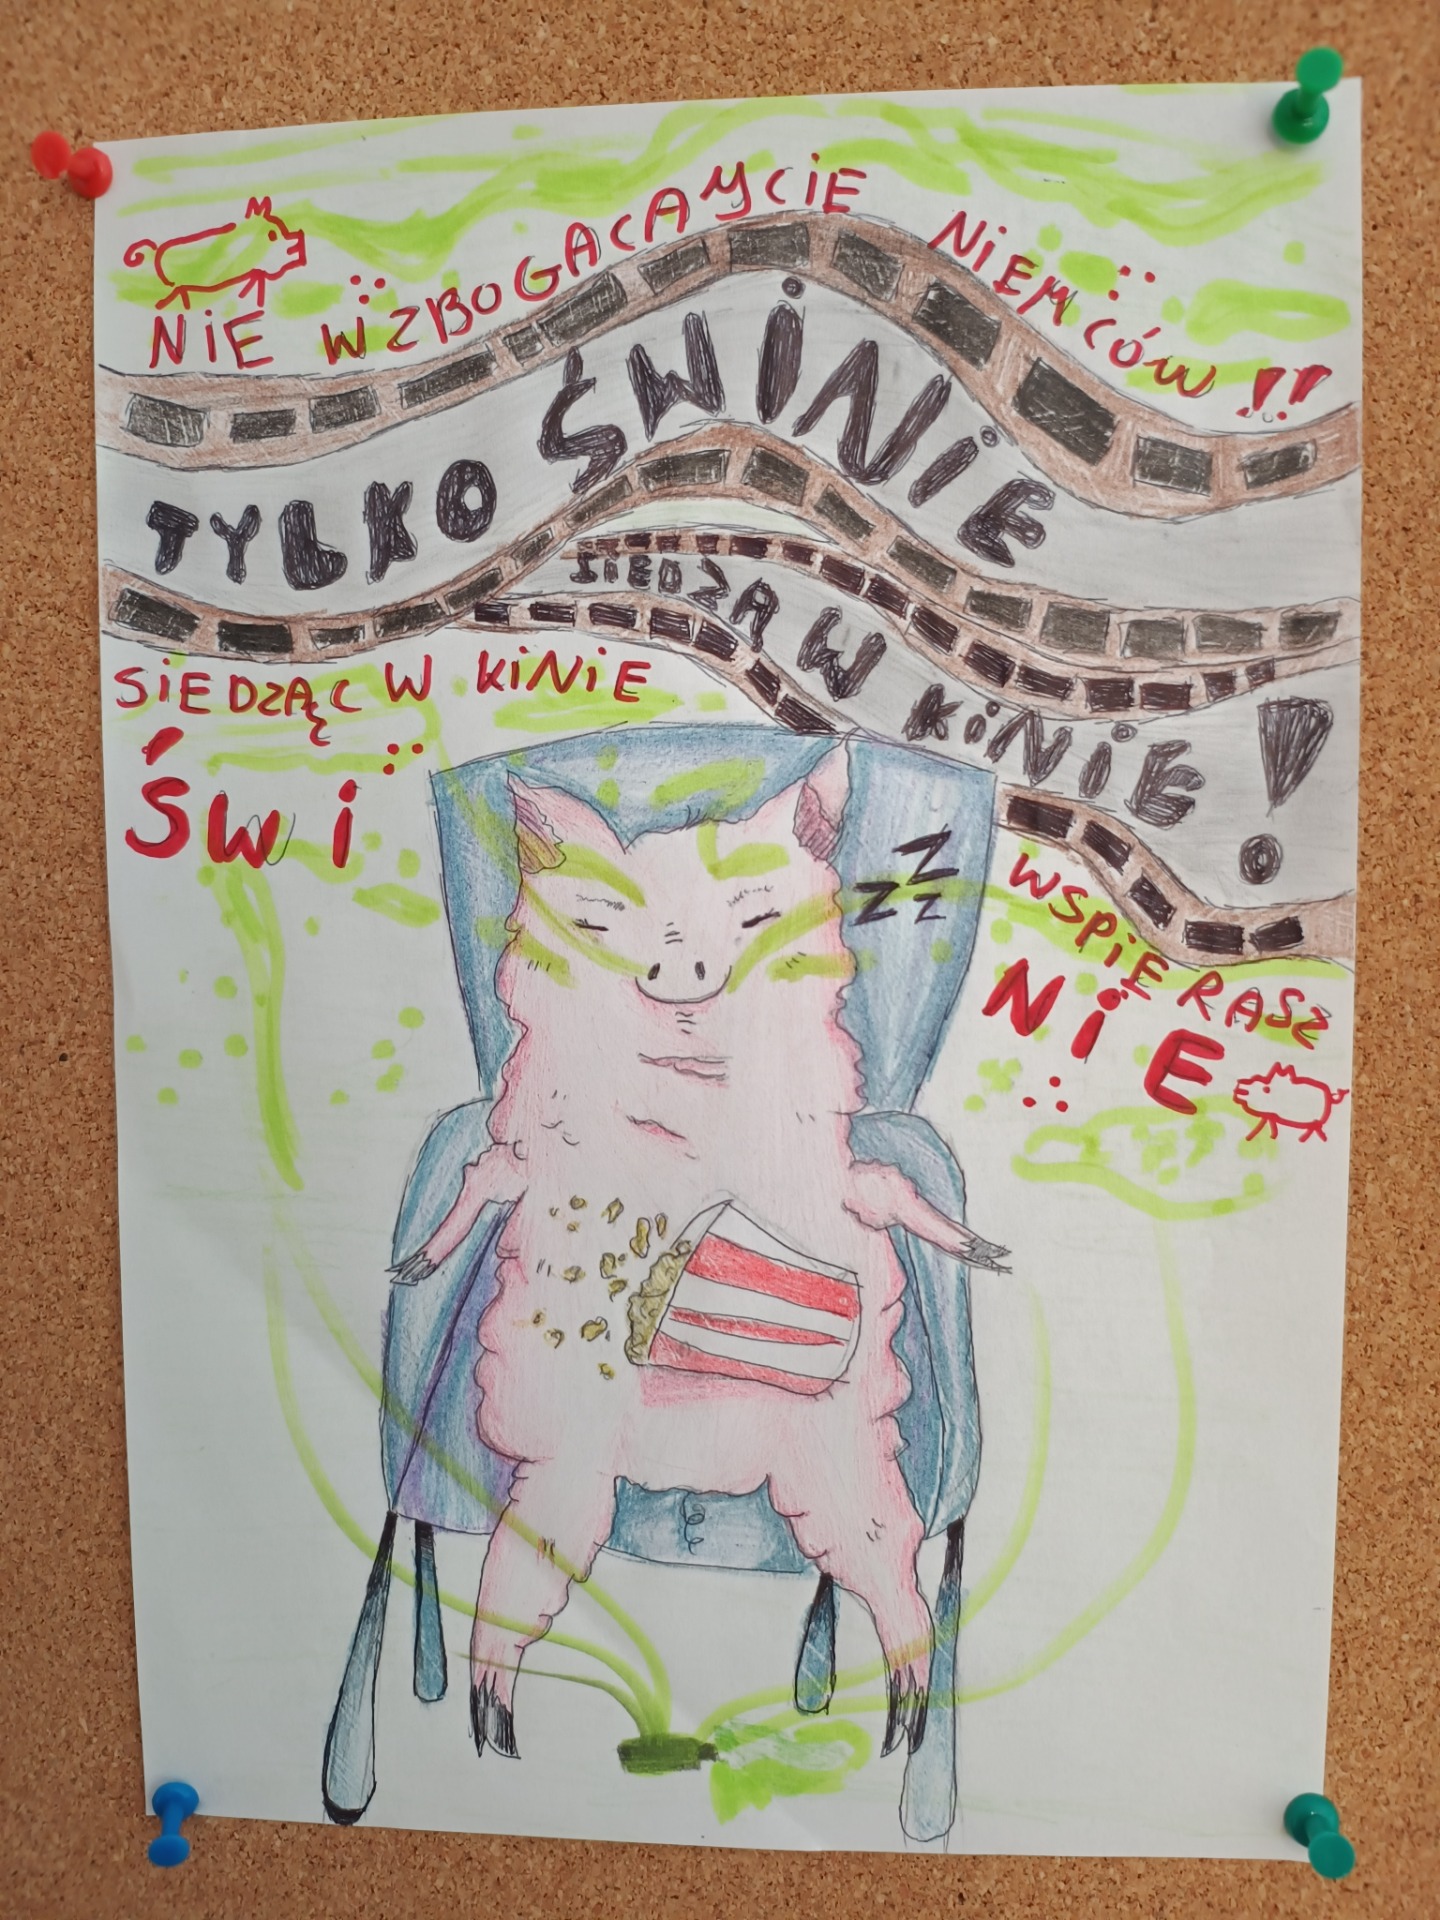 NIE WZBOGACAYCIE NIEMCÓW !!
TYLKO ŚWINIE
SIEDZĄ W KINIE!
SIEDZĄC W KINIE
ŚWI
ZZZ
WSPIERASZ
NIE